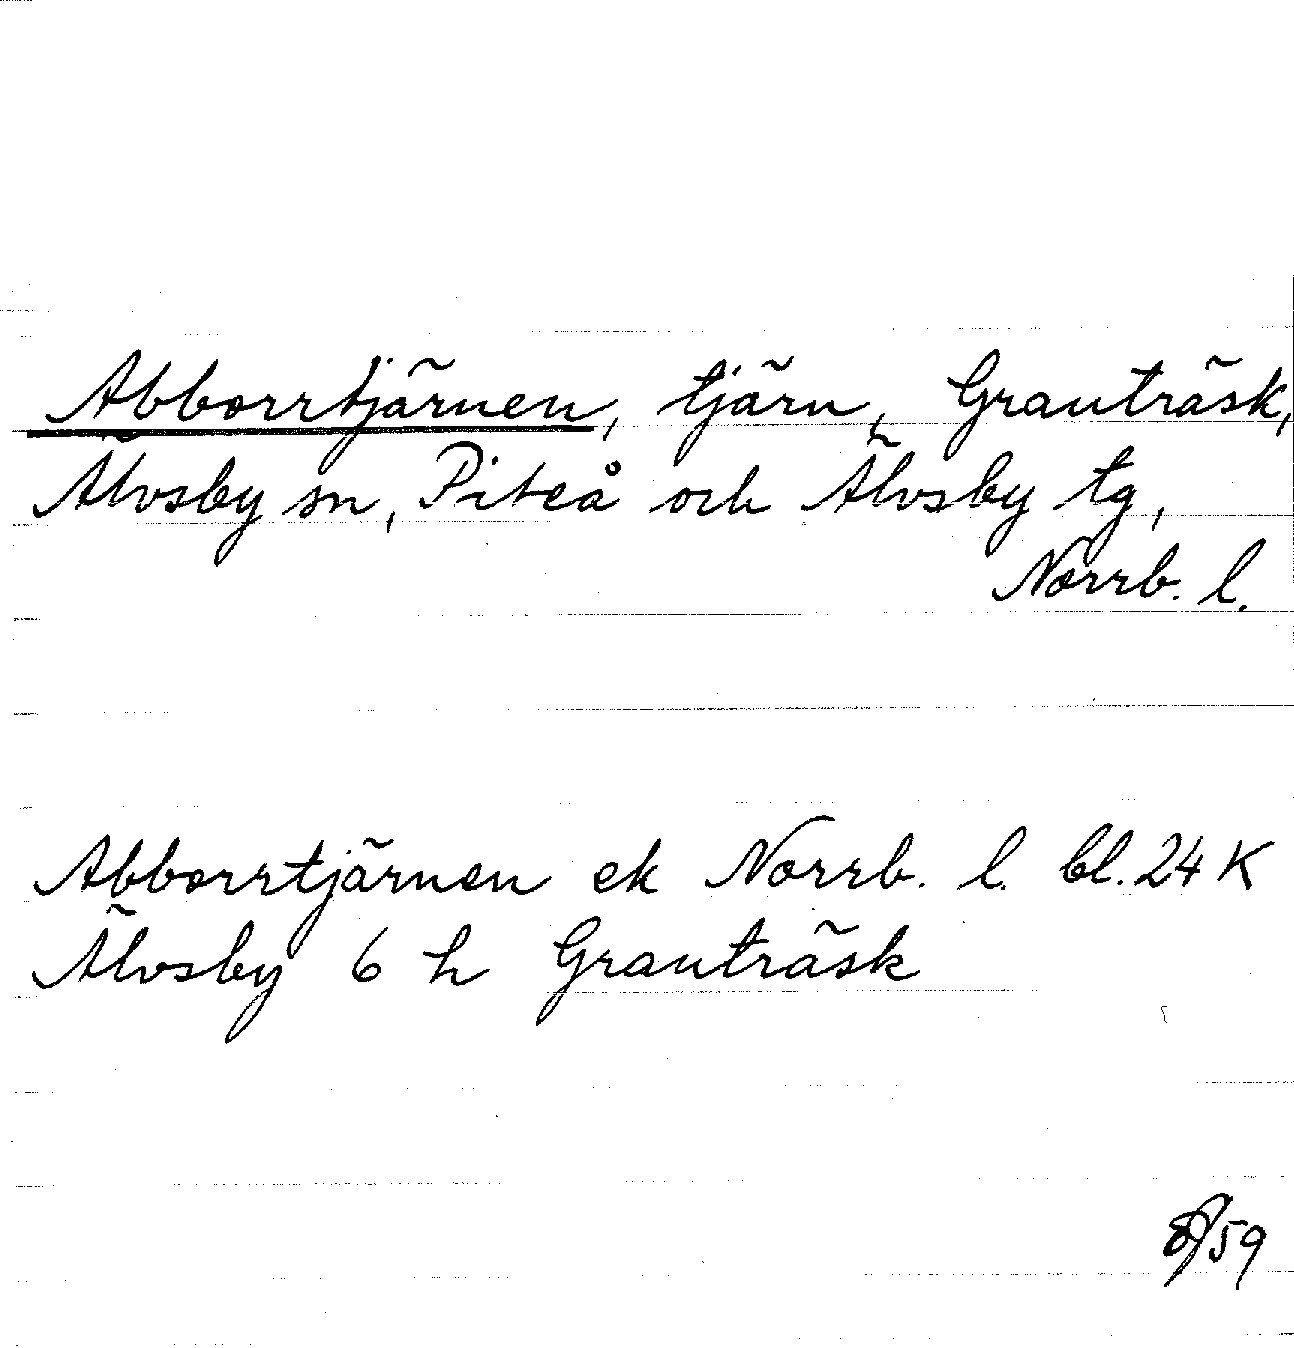 Abborrtjärnen, tjärn, Granträsk,
Älvsby sn, Piteå och Älvsby tg,
Norrb. l.
Abborrtjärnen ek Norrb. l. bl. 24 K
Älvsby 6 h Granträsk
/59